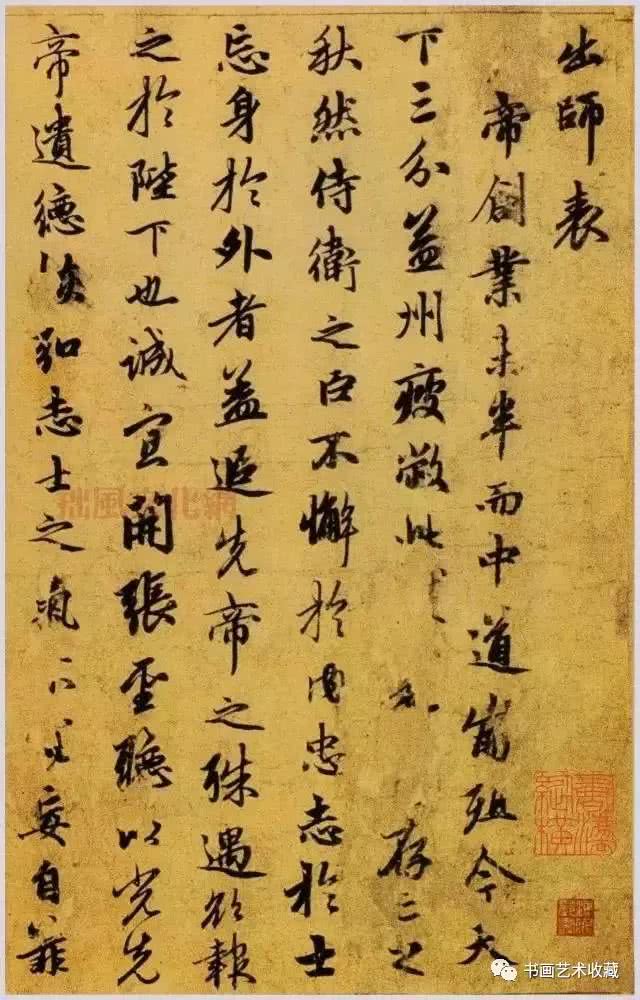 出師表
帝創業未半而中道崩殂今天
下三分益州疲敝此存亡之
秋然侍衛之臣不懈於内忠志於士
忘身於外者蓋追先帝之殊遇欲報
之於陛下也誠宜開張聖聽以光先
帝遺德恢弘志士之氣不宜妄自菲
拙風文化網
书画艺术收藏